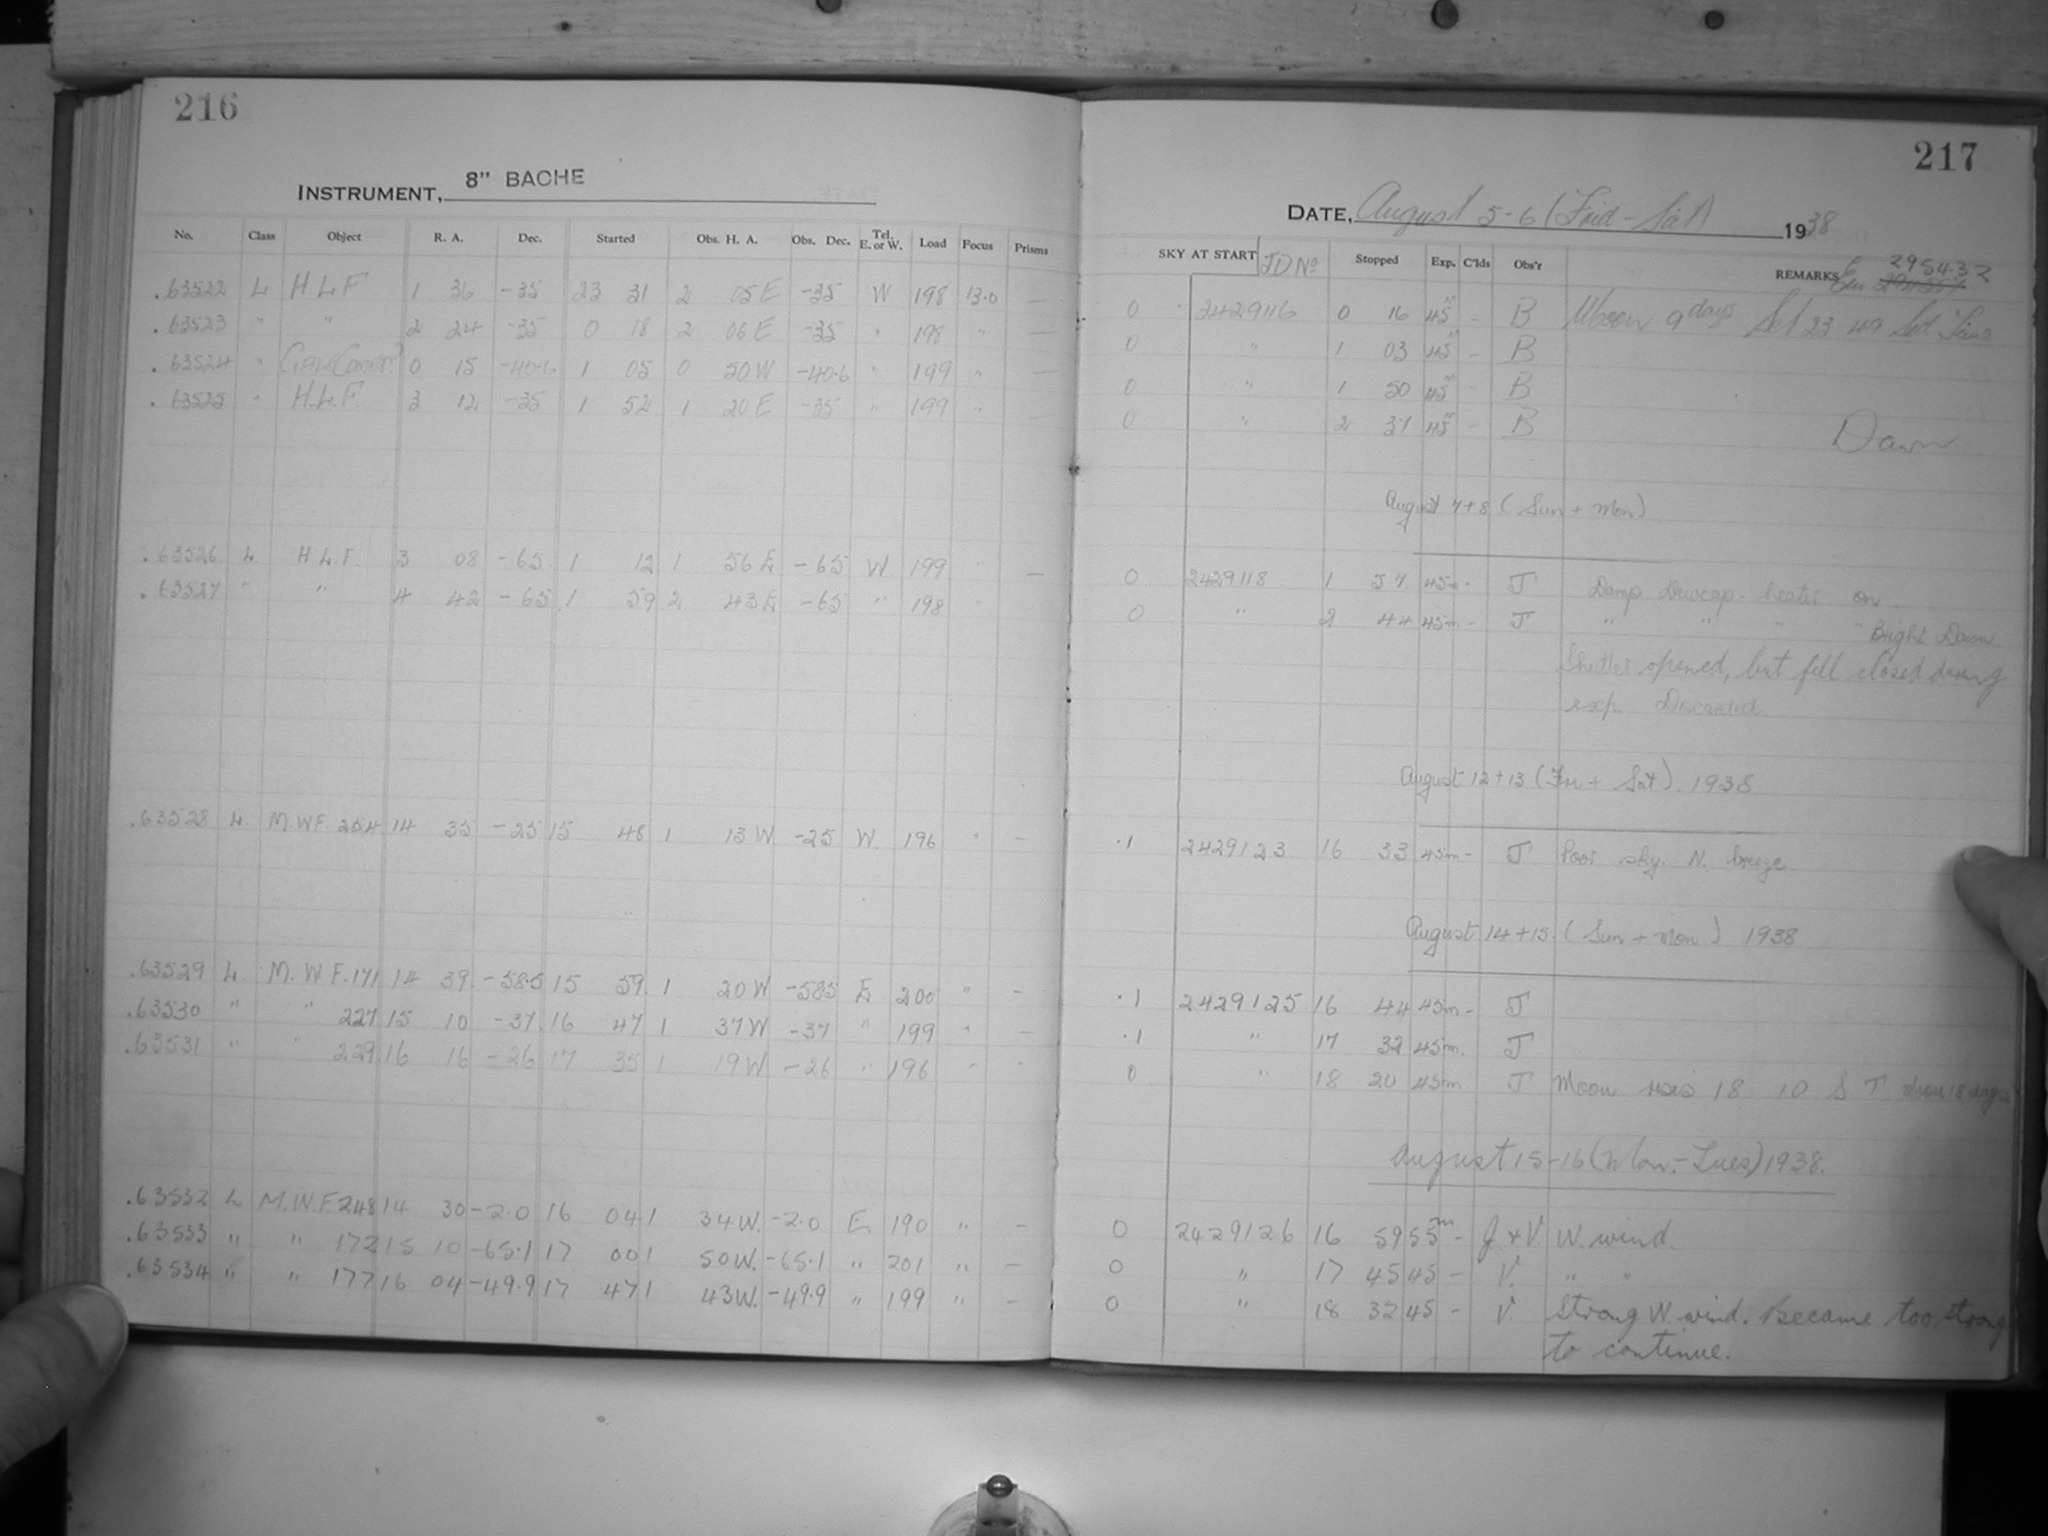 216
INSTRUMENT, 8" BACHE
No. Class Object R. A. Dec. Started Obs. H. A. Obs. Dec. Tel. E. or W. Load Focus Prisms
.63522 L H.L.F 1 36 -35 23 31 2 05 E -35 W 198 13.0 —
.63523 " " 2 24 -35 0 18 2 06 E -35 " 198 " —
.63524 " 0 15 -40.6 1 05 0 50 W -40.6 " 199 " —
.63525 " H.L.F. 3 12 -35 1 52 1 20 E -35 " 199 " —
.63526 L. H.L.F. 3 08 -65 1 12 1 56 E -65 W. 199 " —
.63527 " " 4 42 -65 1 59 2 43 E -65 " 198 "
.63528 L. M.W.F. 254 14 35 -25 15 48 1 13 W. -25 W. 196 " —
.63529 L. M.W.F. 171 14 39 -58.5 15 59 1 20 W -58.5 E 200 " —
.63530 " " 227 15 10 -37 16 47 1 37 W -37 " 199 " —
.63531 " " 229 16 16 -26 17 35 1 19 W -26 " 196 " —
.63532 L M.W.F. 248 14 30 -2.0 16 04 1 34 W. -2.0 E 190 " —
.63533 " " 172 15 10 -65.1 17 00 1 50 W. -65.1 " 201 " —
.63534 " " 177 16 04 -49.9 17 47 1 43 W. -49.9 " 199 " —
217
DATE, August 5-6 (Frid - Sat) 1938
SKY AT START JD No Stopped Exp. C'lds Obs'r REMARKS 295432
0 2429116 0 16 45m - B Moon 9 days Set 23 49 Sid Time
0 " 1 03 45m - B
0 " 1 50 45m - B
0 " 2 37 45m - B Dawn
August 7+8 (Sun + Mon)
0 2429118 1 57 45m - J Damp Dewcap heater on.
0 " 2 44 45m - J " " " " Bright Dawn
Shutter opened, but fell closed during
exp. Discarded
August 12+13 (Fri + Sat). 1938
.1 2429123 16 33 45m - J Poor sky. N. breeze
August 14+15. (Sun + Mon) 1938
.1 2429125 16 44 45m - J
.1 " 17 32 45m. J
0 " 18 20 45m J Moon rises 18 10 S T Moon 18 days
August 15-16 (Mon.-Tues) 1938.
0 2429126 16 59 55m - J + V. W. wind.
0 " 17 45 45 - V. " "
0 " 18 32 45 - V Strong W. wind. Became too strong
to continue.